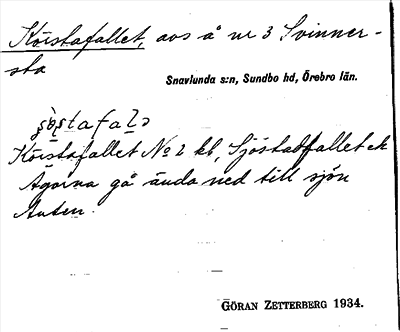 Körstafallet, avs å nr 3 Svinner-
sta
Snavlunda s:n, Sundbo hd, Örebro län.
Körstafallet No 2 kb, Sjöstabfallet ek
Ägorna gå ända ned till sjön
Anten.
GÖRAN ZETTERBERG 1934.